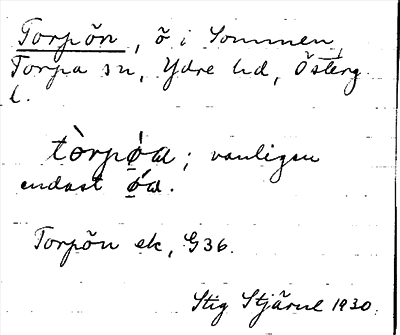 Torpön, ö i Sommen,
Torpa sn, Ydre hd, Österg
l.
tòrpǿa; vanligen
endast ǿa.
Torpön ek, G36.
Stig Stjärne 1930.